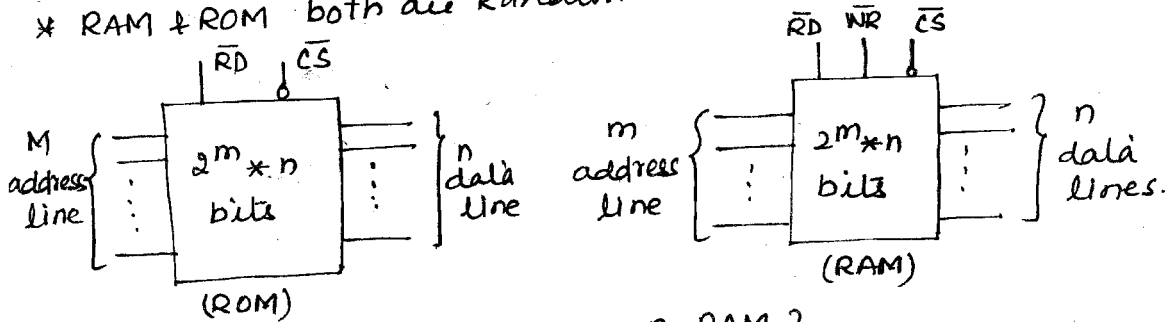 * RAM & ROM both are Random
R̅D̅ C̅S̅
M address line
2^m * n bits
n data line
(ROM)
R̅D̅ W̅R̅ C̅S̅
m address line
2^m * n bits
n data lines.
(RAM)
RAM ?